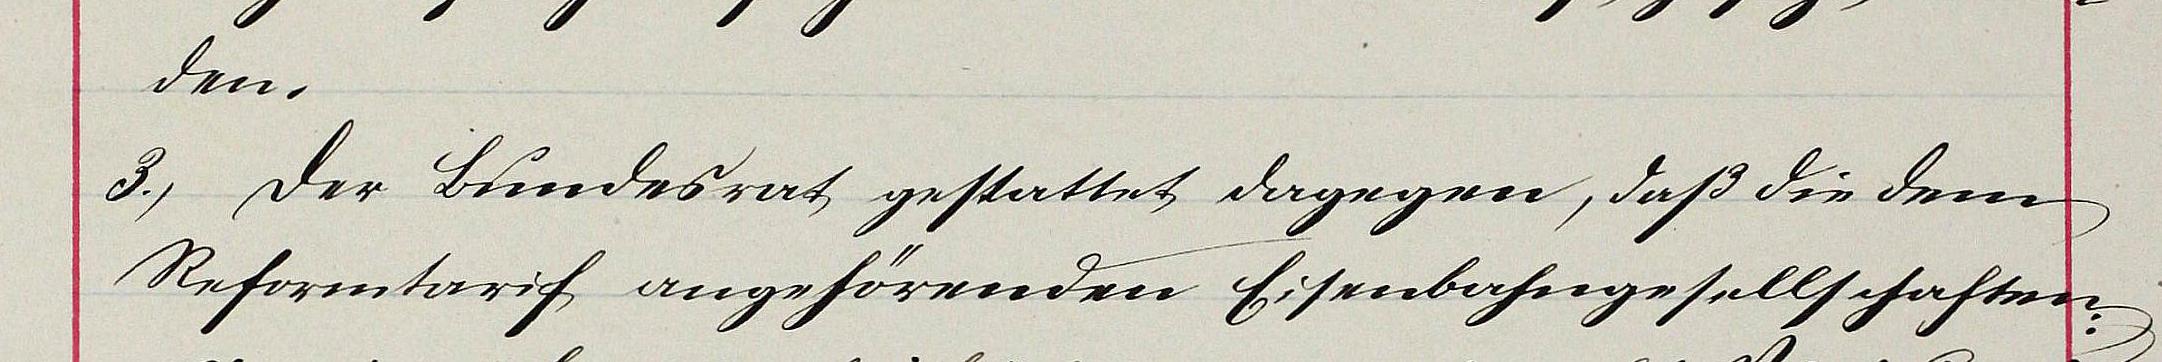 den.
3., Der Bundesrat gestattet dagegen, daß die dem
Reformtarif angehörenden Eisenbahngesellschaften: